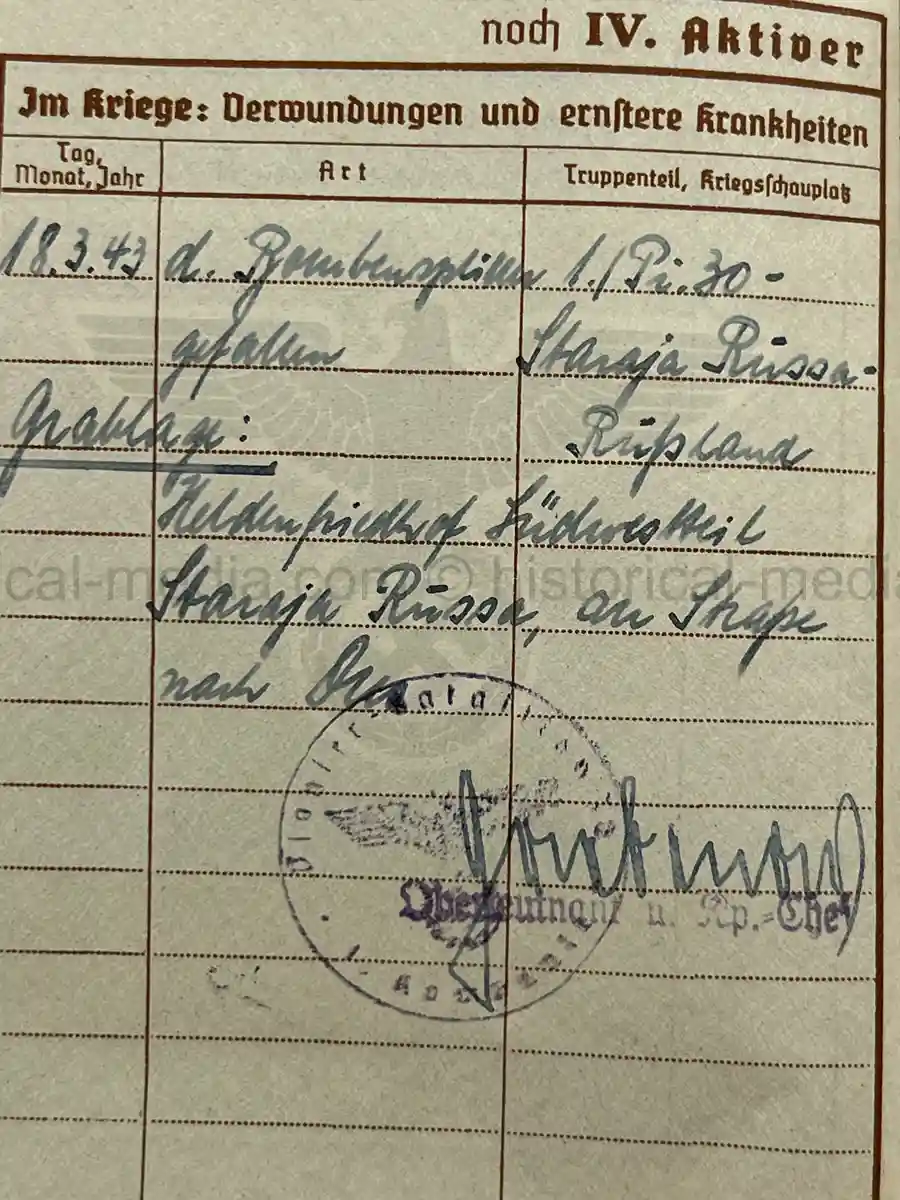 noch IV. Aktiver
Im Kriege: Verwundungen und ernstere Krankheiten
Tag, Monat, Jahr
Art
Truppenteil, Kriegsschauplatz
18.3.43 d. Bombensplitter 1./Pi. 30 -
gefallen Staraja Russa -
Grablage: Rußland
Heldenfriedhof Südwestteil
Staraja Russa, an Straße
nach
Pionier-Bataillon
1. Kompanie
Oberleutnant u. Kp.=Chef